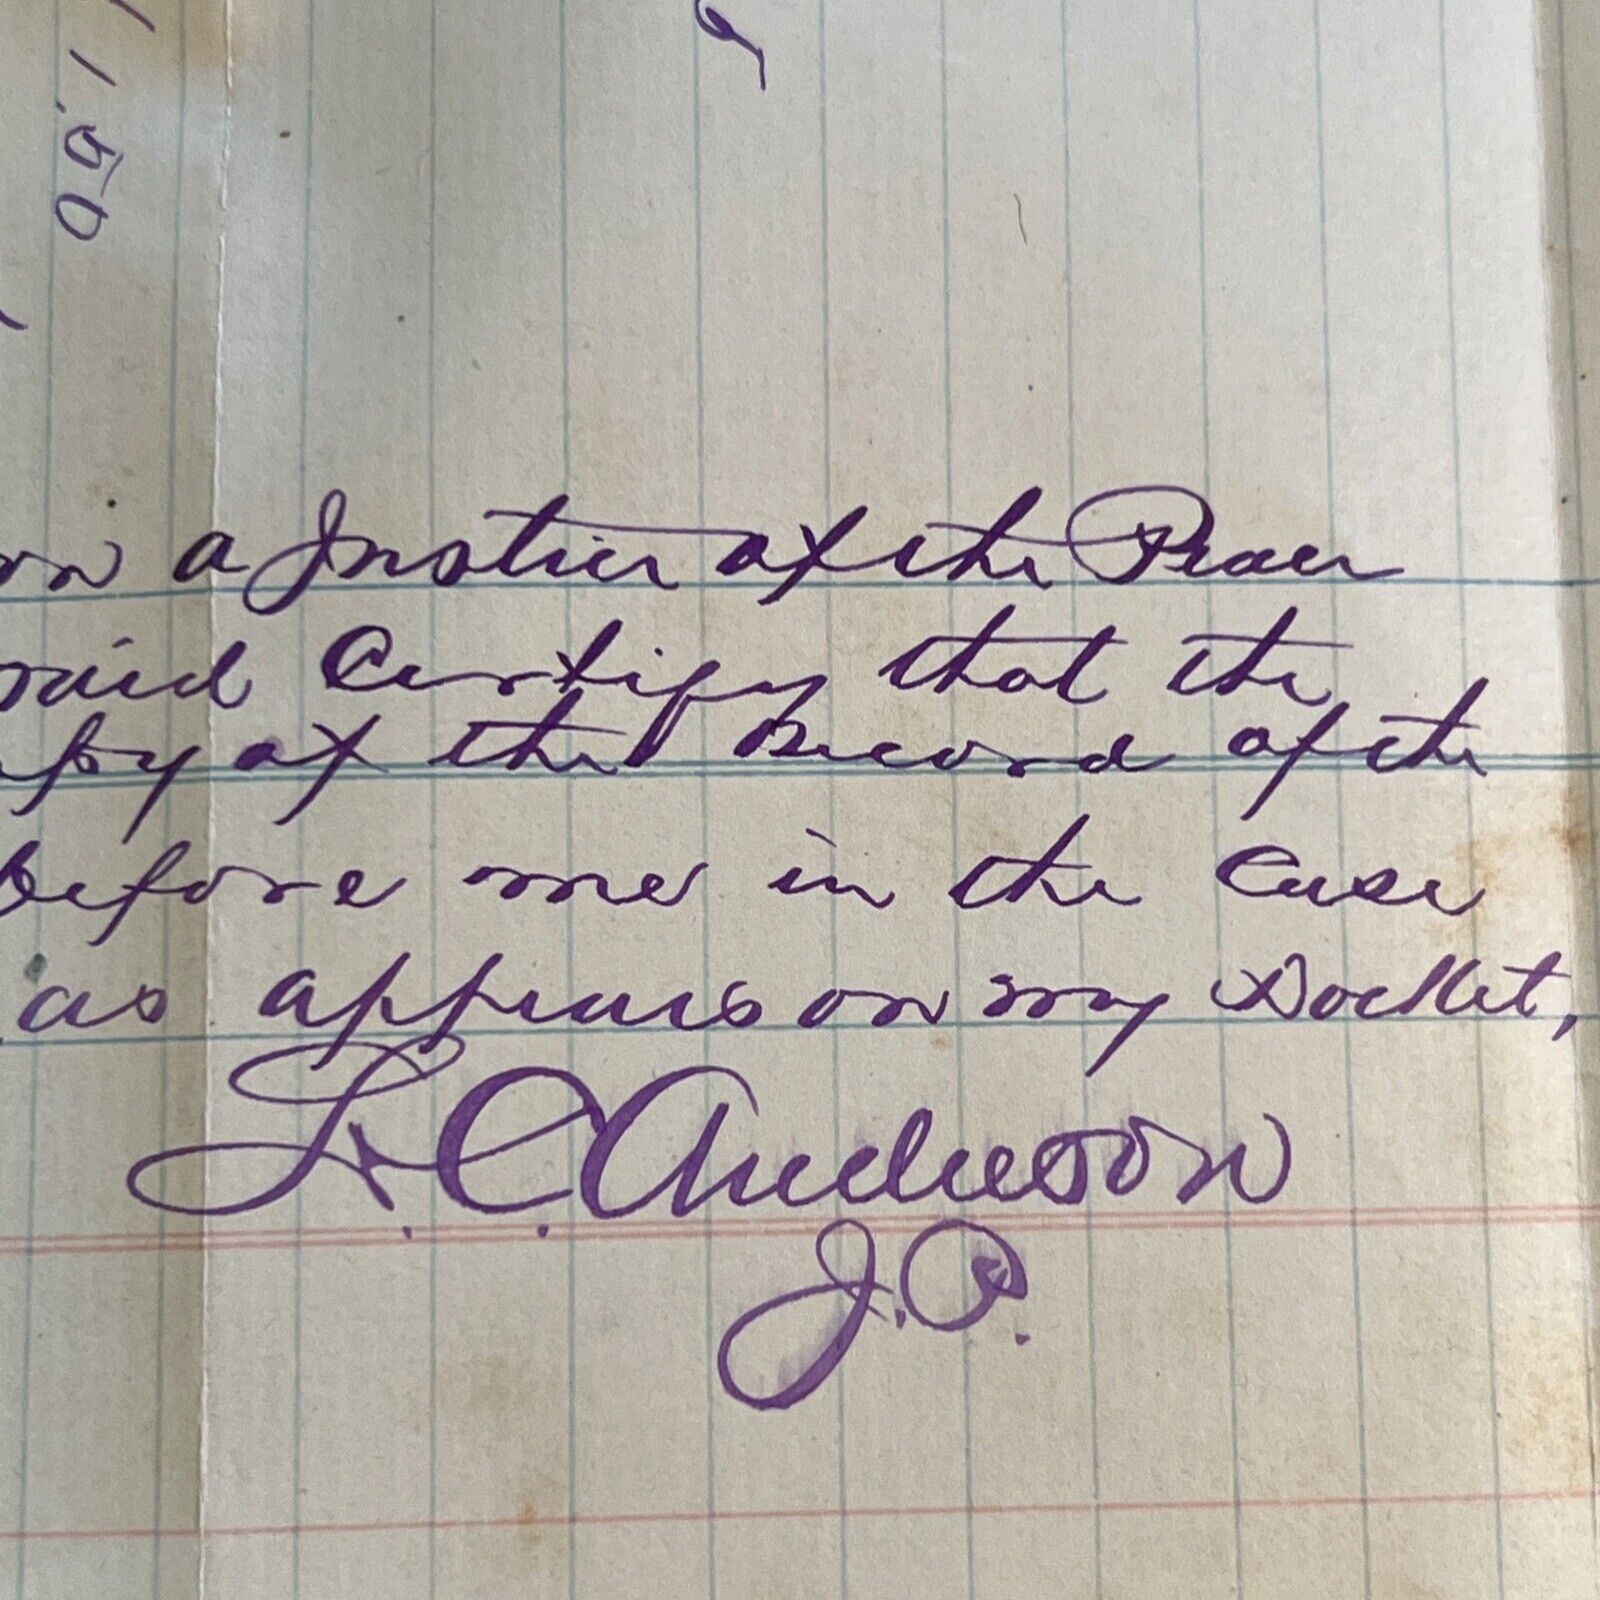 on a Justice of the Peace
said Certify that the
opy of the Record of the
before me in the Case
as appears on my Docket,
L. C. Anderson
J.P.
1.50